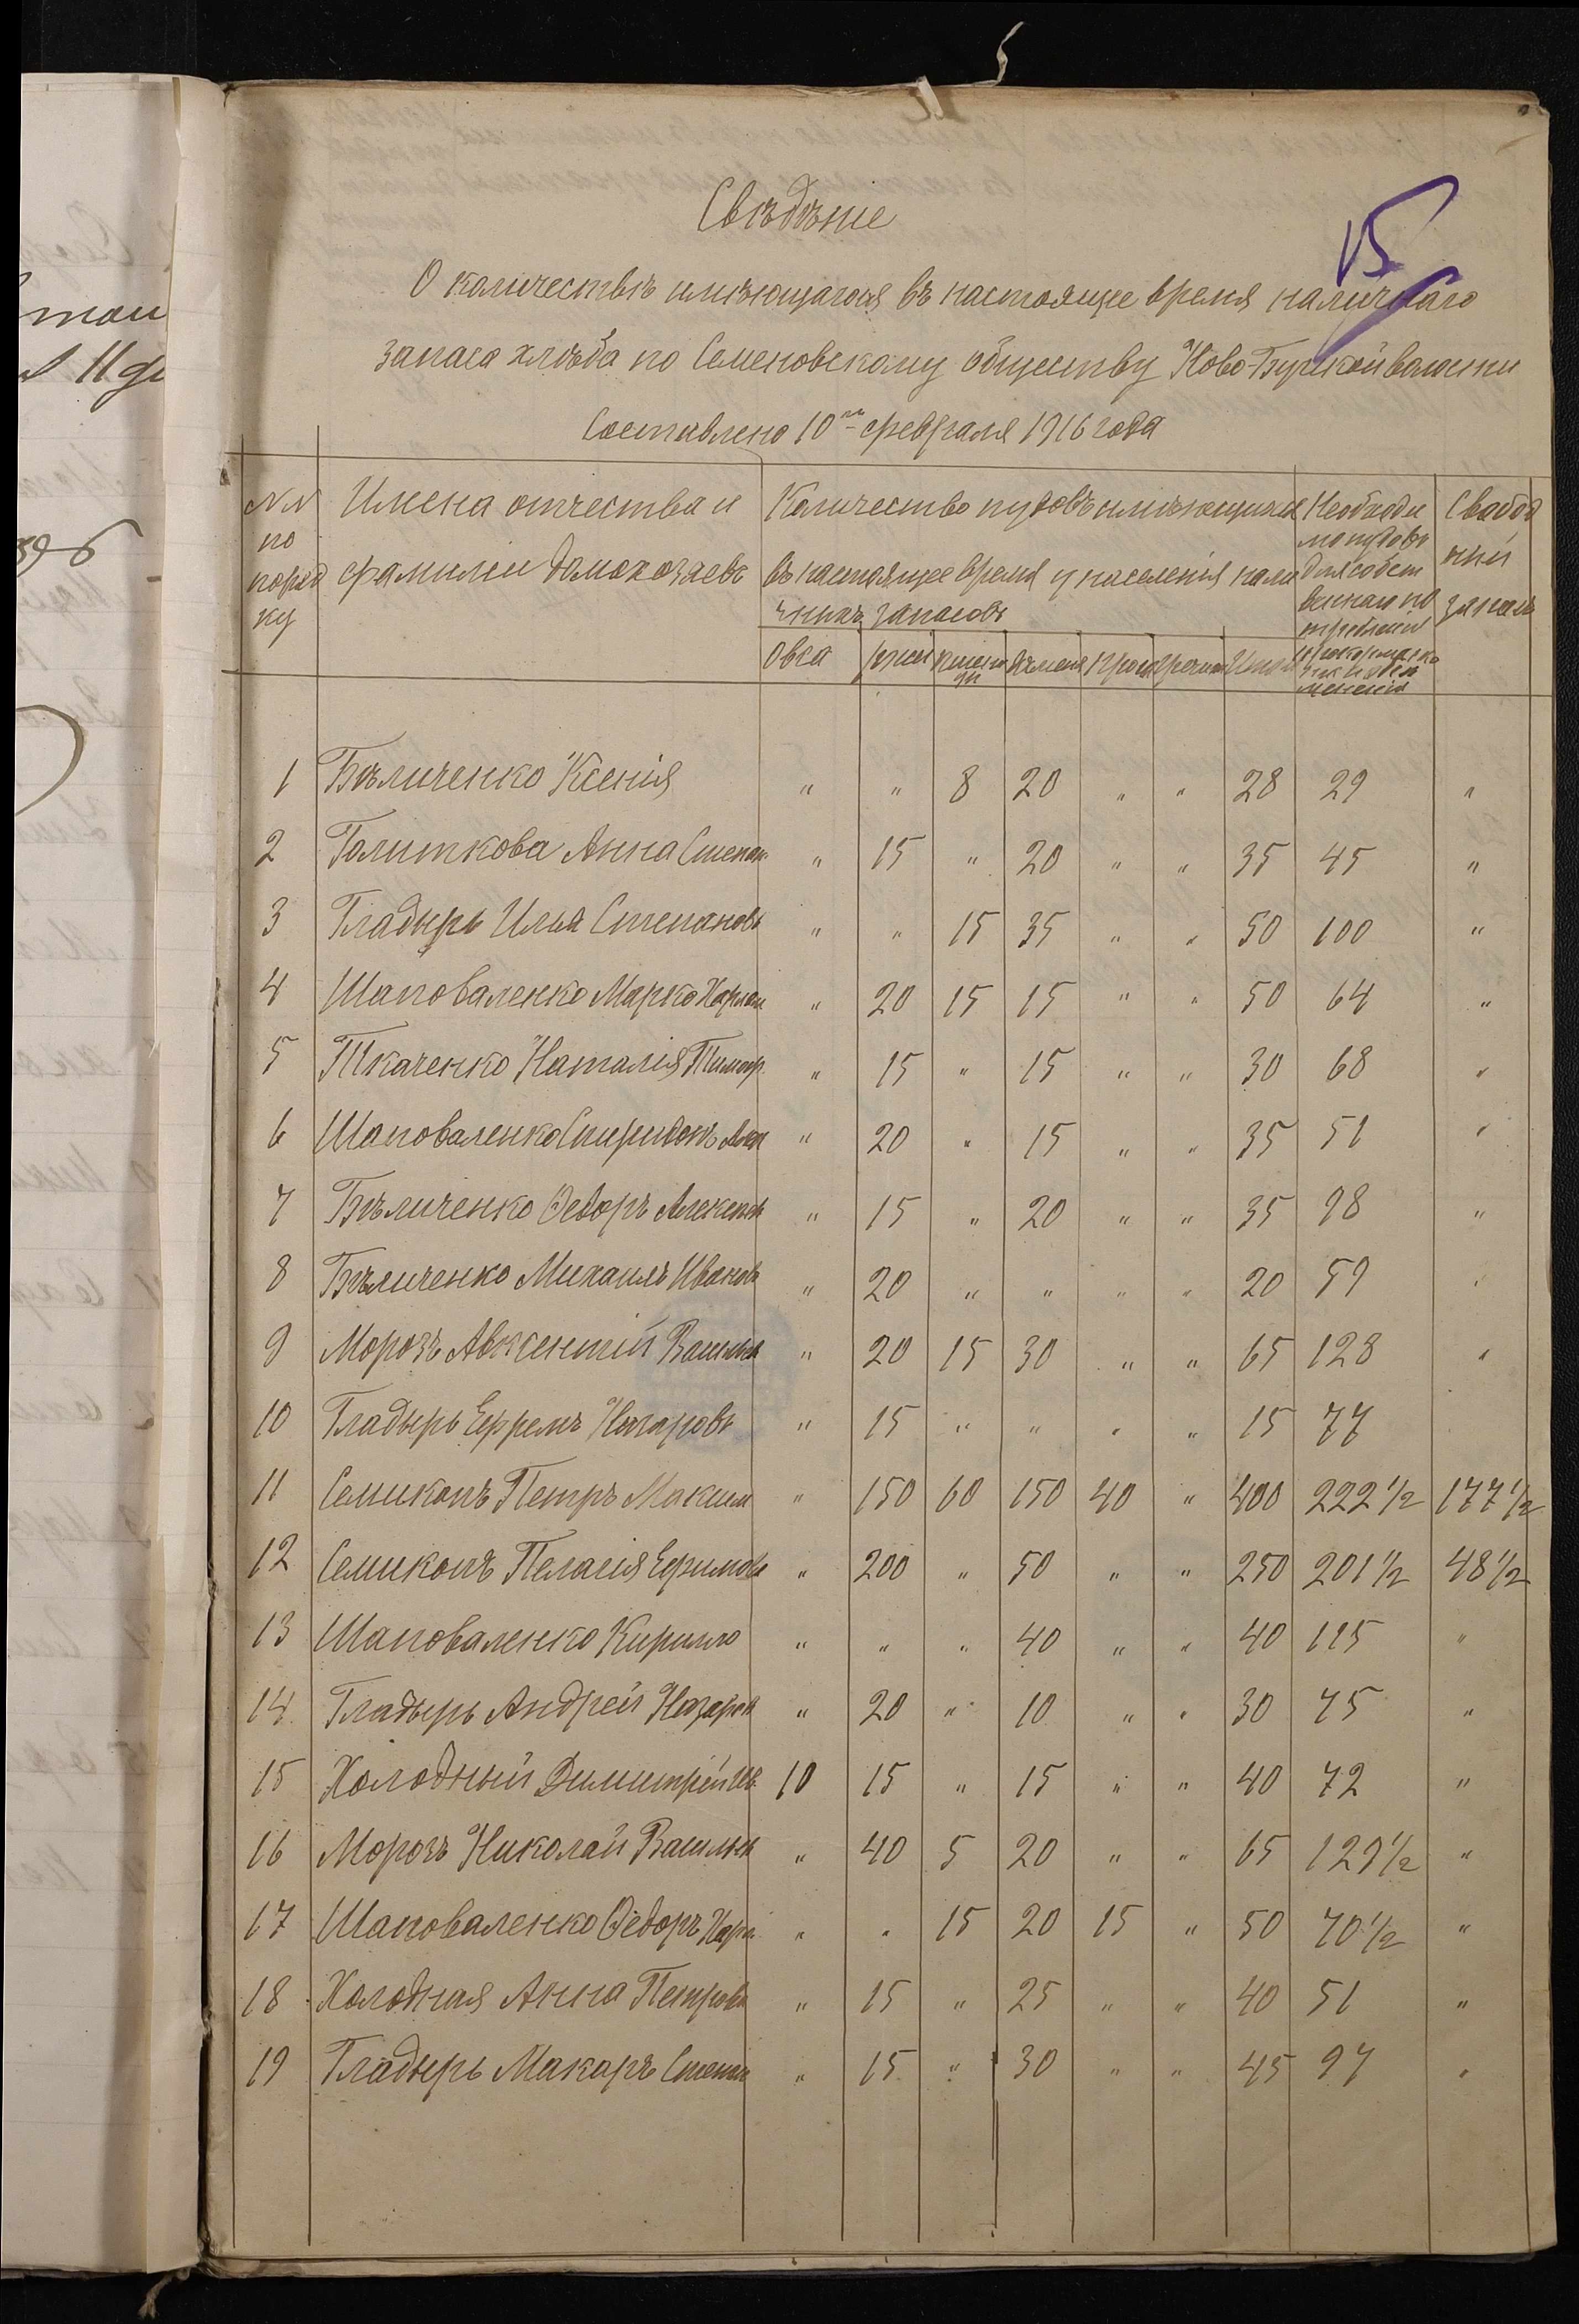 15
Свѣдѣніе
О количествѣ имѣющагося въ настоящее время наличнаго
запаса хлѣба по Семеновскому обществу Ново-Бугской волости
Составлено 10го февраля 1916 года
NN по поряд ку | Имена отчества и фамиліи домохозяевъ | Количество пудовъ имѣющихся въ настоящее время у населенія нали чныхъ запасовъ | Необходи мо пудовъ для собст веннаго по требленія | Свабод ний запасъ
Овса | ржи | пшени цы | ячменя | проса | гречихи | Итого
1 Бѣличенко Ксенія " " 8 20 " " 28 29 "
2 Голиткова Анна Степан " 15 " 20 " " 35 45 "
3 Гладырь Илья Степановъ " " 15 35 " " 50 100 "
4 Шаповаленко Марко Харлам " 20 15 15 " " 50 64 "
5 Ткаченко Наталія Тимоф. " 15 " 15 " " 30 68 "
6 Шаповаленко Спиридонъ " 20 " 15 " " 35 51 "
7 Бѣличенко Ѳедоръ Алексѣев " 15 " 20 " " 35 98 "
8 Бѣличенко Михаилъ Ивановъ " 20 " " " " 20 59 "
9 Морозъ Авксентій Васильев " 20 15 30 " " 65 128 "
10 Гладырь Ефремъ Назаровъ " 15 " " " " 15 77
11 Семикопъ Петръ Максим " 150 60 150 40 " 400 222 1/2 177 1/2
12 Семикопъ Пелагія Ефимова " 200 " 50 " " 250 201 1/2 48 1/2
13 Шаповаленко Кирилло " " " 40 " " 40 115 "
14 Гладырь Андрей Назаров " 20 " 10 " " 30 75 "
15 Холодный Димитрій Ив. 10 15 " 15 " " 40 72 "
16 Морозъ Николай Васильев " 40 5 20 " " 65 129 1/2 "
17 Шаповаленко Ѳедоръ Харл " " 15 20 15 " 50 70 1/2 "
18 Холодная Анна Петрова " 15 " 25 " " 40 51 "
19 Гладырь Макаръ Степан " 15 " 30 " " 45 97 "